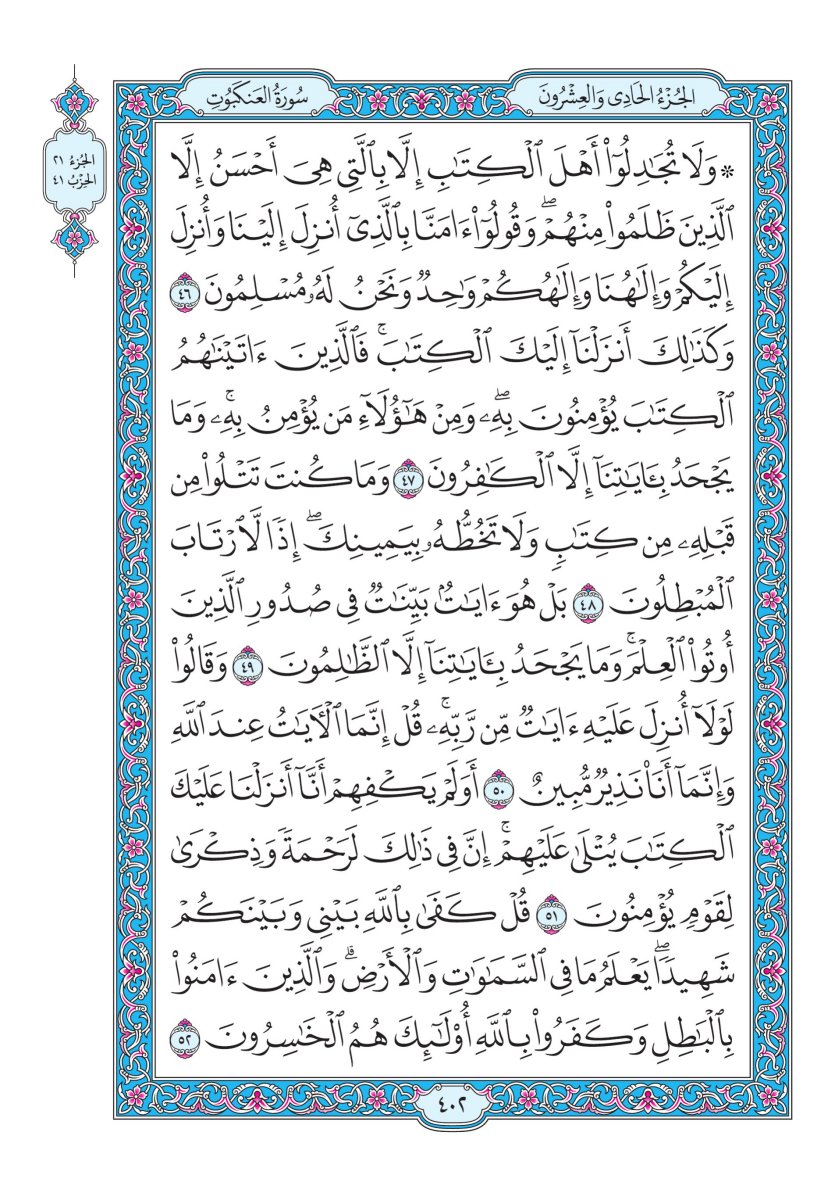 الجُزْءُ الحَادِى وَالعِشْرُونَ
سُورَةُ العَنكَبُوتِ
الجُزءُ ٢١
الحِزْبُ ٤١
* وَلَا تُجَٰدِلُوٓا۟ أَهْلَ ٱلْكِتَٰبِ إِلَّا بِٱلَّتِى هِىَ أَحْسَنُ إِلَّا
ٱلَّذِينَ ظَلَمُوا۟ مِنْهُمْۖ وَقُولُوٓا۟ ءَامَنَّا بِٱلَّذِىٓ أُنزِلَ إِلَيْنَا وَأُنزِلَ
إِلَيْكُمْ وَإِلَٰهُنَا وَإِلَٰهُكُمْ وَٰحِدٌ وَنَحْنُ لَهُۥ مُسْلِمُونَ ٤٦
وَكَذَٰلِكَ أَنزَلْنَآ إِلَيْكَ ٱلْكِتَٰبَۚ فَٱلَّذِينَ ءَاتَيْنَٰهُمُ
ٱلْكِتَٰبَ يُؤْمِنُونَ بِهِۦۖ وَمِنْ هَٰٓؤُلَآءِ مَن يُؤْمِنُ بِهِۦۚ وَمَا
يَجْحَدُ بِـَٔايَٰتِنَآ إِلَّا ٱلْكَٰفِرُونَ ٤٧ وَمَا كُنتَ تَتْلُوا۟ مِن
قَبْلِهِۦ مِن كِتَٰبٍ وَلَا تَخُطُّهُۥ بِيَمِينِكَۖ إِذًا لَّٱرْتَابَ
ٱلْمُبْطِلُونَ ٤٨ بَلْ هُوَ ءَايَٰتٌۢ بَيِّنَٰتٌ فِى صُدُورِ ٱلَّذِينَ
أُوتُوا۟ ٱلْعِلْمَۚ وَمَا يَجْحَدُ بِـَٔايَٰتِنَآ إِلَّا ٱلظَّٰلِمُونَ ٤٩ وَقَالُوا۟
لَوْلَآ أُنزِلَ عَلَيْهِ ءَايَٰتٌ مِّن رَّبِّهِۦۚ قُلْ إِنَّمَا ٱلْـَٔايَٰتُ عِندَ ٱللَّهِ
وَإِنَّمَآ أَنَا۠ نَذِيرٌ مُّبِينٌ ٥٠ أَوَلَمْ يَكْفِهِمْ أَنَّآ أَنزَلْنَا عَلَيْكَ
ٱلْكِتَٰبَ يُتْلَىٰ عَلَيْهِمْۚ إِنَّ فِى ذَٰلِكَ لَرَحْمَةً وَذِكْرَىٰ
لِقَوْمٍ يُؤْمِنُونَ ٥١ قُلْ كَفَىٰ بِٱللَّهِ بَيْنِى وَبَيْنَكُمْ
شَهِيدًاۖ يَعْلَمُ مَا فِى ٱلسَّمَٰوَٰتِ وَٱلْأَرْضِۗ وَٱلَّذِينَ ءَامَنُوا۟
بِٱلْبَٰطِلِ وَكَفَرُوا۟ بِٱللَّهِ أُو۟لَٰٓئِكَ هُمُ ٱلْخَٰسِرُونَ ٥٢
٤٠٢